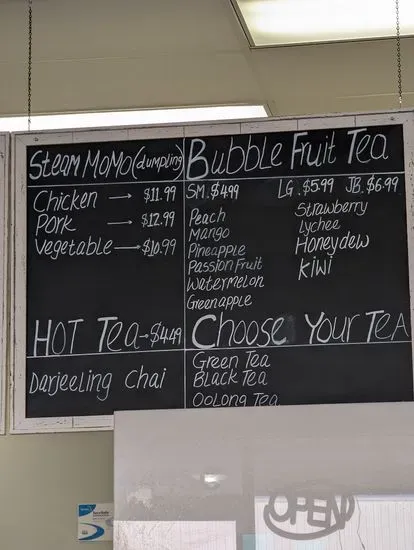 Steam MoMo (dumpling)
Chicken → $11.99
Pork → $12.99
Vegetable → $10.99
HOT Tea → $4.49
Darjeeling Chai
Bubble Fruit Tea
SM. $4.99 LG. $5.99 JB. $6.99
Peach
Mango
Pineapple
Passion Fruit
Watermelon
Greenapple
Strawberry
Lychee
Honeydew
Kiwi
Choose Your Tea
Green Tea
Black Tea
Oolong Tea
OPEN